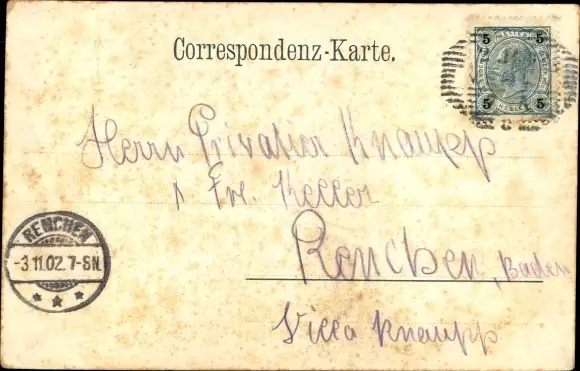 Correspondenz-Karte.
5 5
5 5
Herrn Privatier Knaupp
Frl. Keller
Renchen, Baden
Villa Knaupp
RENCHEN
-3.11.02.7-8N.